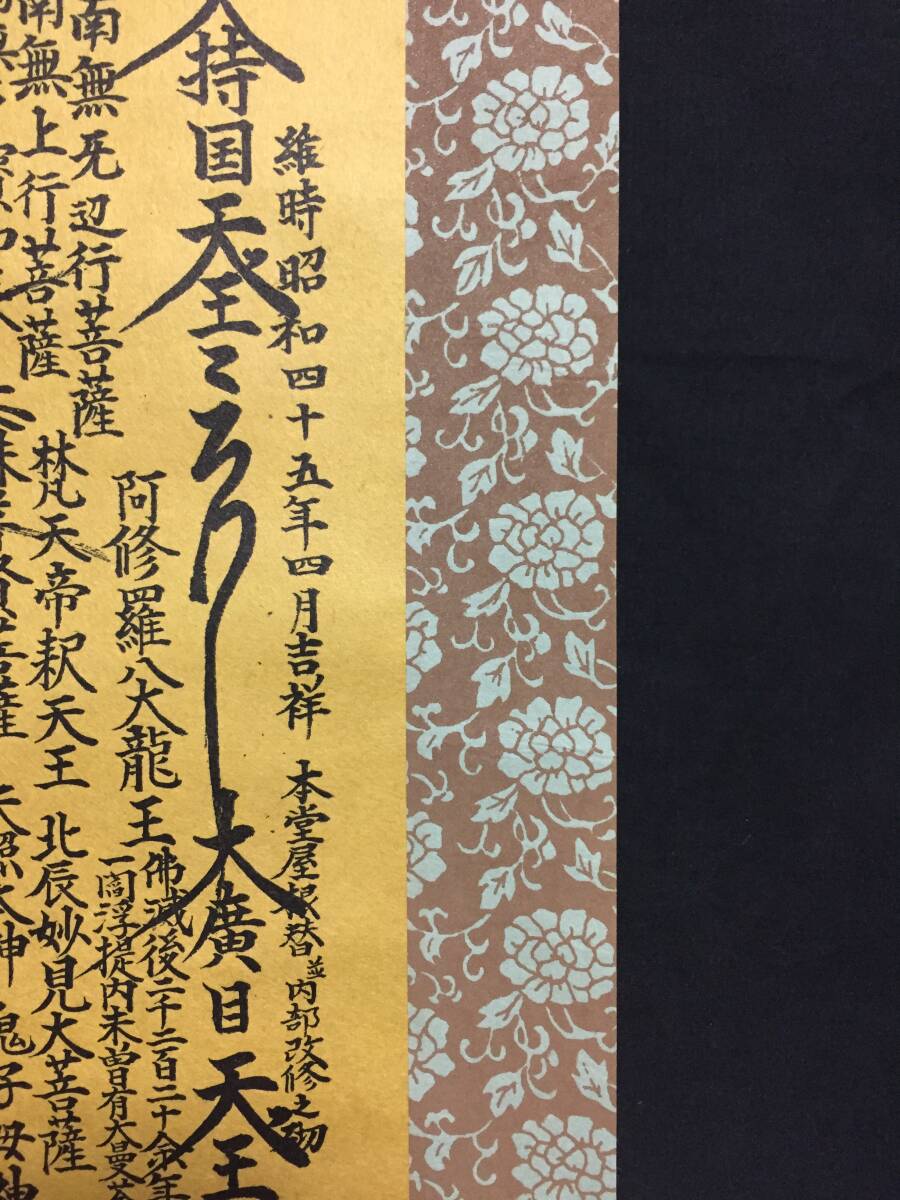 維時昭和四十五年四月吉祥 本堂屋根替並内部改修之砌
大持国天王
大廣目天王
佛滅後二千二百二十余年
一閻浮提内未曽有大曼荼
阿修羅八大龍王
南無无辺行菩薩
梵天帝釈天王 北辰妙見大菩薩
南無上行菩薩
天照太神 鬼子母神